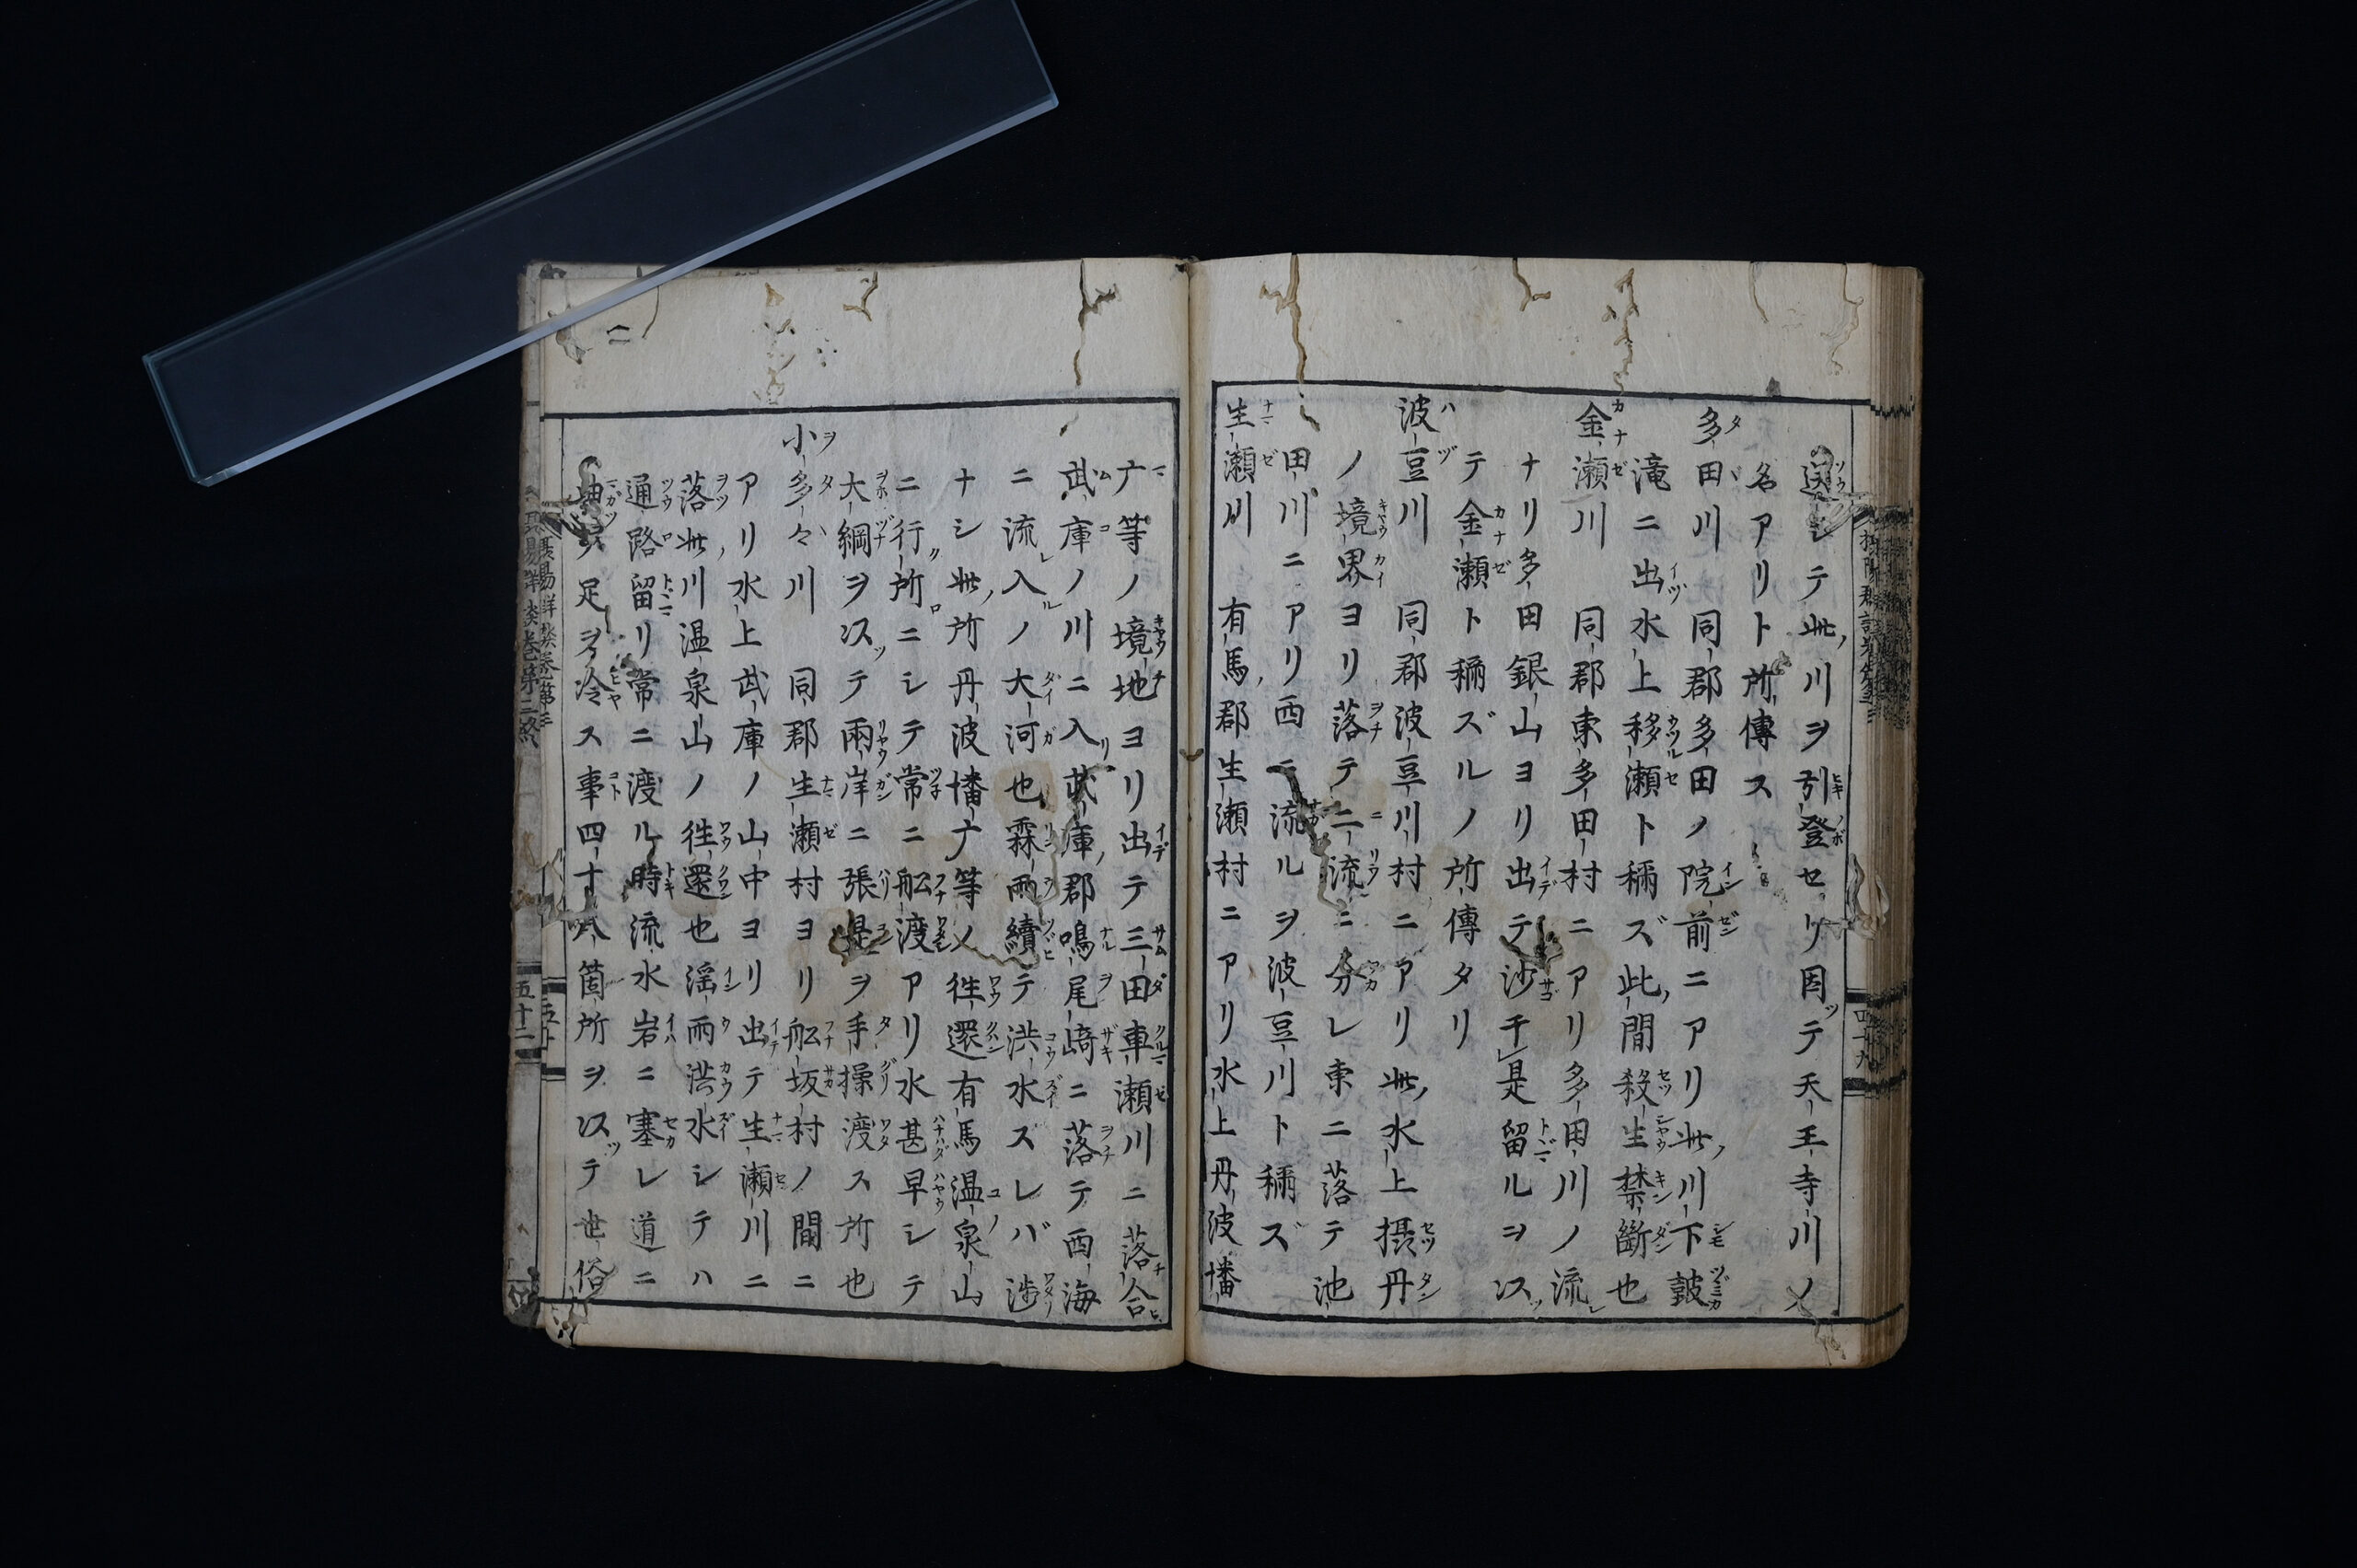 送シテ此川ヲ引登セリ因テ天王寺川ノ
名アリト所傳ス
多田川 同郡多田ノ院前ニアリ此川下皷
滝ニ出水上移瀬ト稱ズ此間殺生禁斷也
金瀬川 同郡東多田村ニアリ多田川ノ流
ナリ多田銀山ヨリ出テ沙干是留ルヲ以
テ金瀬ト稱ズルノ所傳タリ
波豆川 同郡波豆川村ニアリ此水上摂丹
ノ境界ヨリ落テ二流ニ分レ東ニ落テ池
田川ニアリ西ニ流ルヲ波豆川ト稱ズ
生瀬川 有馬郡生瀬村ニアリ水上丹波墦
ナ等ノ境地ヨリ出テ三田車瀬川ニ落合
武庫ノ川ニ入武庫郡鳴尾﨑ニ落テ西海
ニ流入ノ大河也霖雨續テ洪水ズレバ渉
ナシ此所丹波墦ナ等ノ徃還有馬温泉山
ニ行所ニシテ常ニ舩渡アリ水甚早シテ
大綱ヲ以テ兩岸ニ張是ヲ手操渡ス所也
小多々川 同郡生瀬村ヨリ舩坂村ノ間ニ
アリ水上武庫ノ山中ヨリ出テ生瀬川ニ
落此川温泉山ノ徃還也滛雨洪水シテハ
通路留リ常ニ渡ル時流水岩ニ塞レ道ニ
足ヲ冷ス事四十八箇所ヲ以テ世俗
五十二